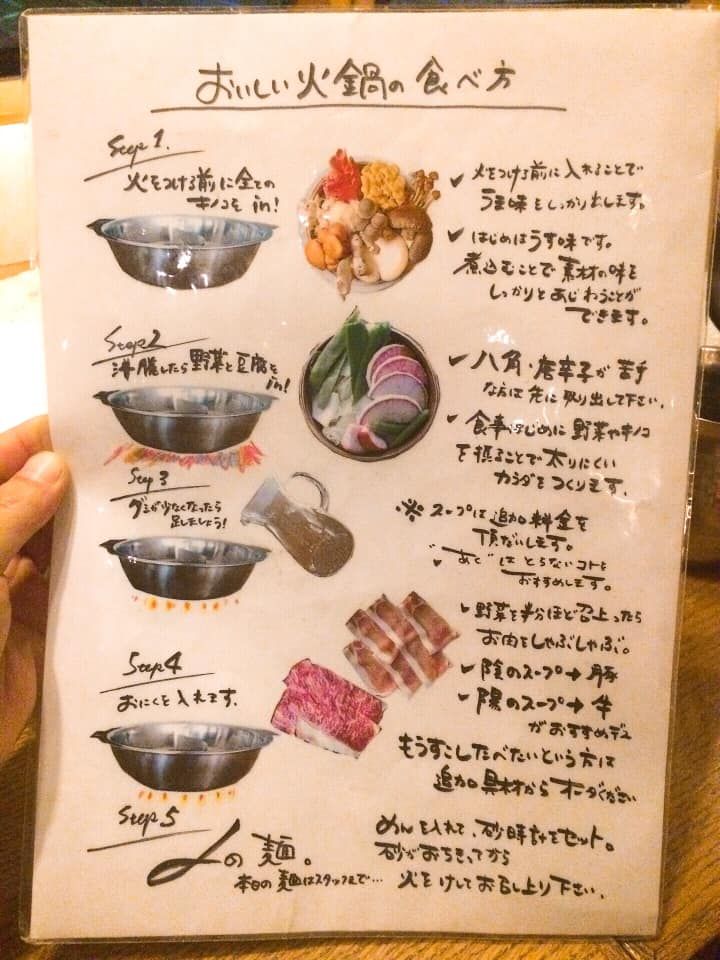 おいしい火鍋の食べ方
Step 1.
火をつける前に全ての
キノコを in!
✓ 火をつける前に入れることで
うま味をしっかり出します。
✓ はじめはうす味です。
煮込むことで素材の味を
しっかりとあじわうことが
できます。
Step 2
沸騰したら野菜と豆腐を
in!
✓ 八角・唐辛子が苦手
な方は先に取り出して下さい。
✓ 食事はじめに野菜やキノコ
を摂ることで太りにくい
カラダをつくります。
Step 3
ダシが少なくなったら
足しましょう!
※ スープは追加料金を
頂だいします。
✓ "あく"はとらないコトを
おすすめします。
✓ 野菜を半分ほど召上ったら
お肉をしゃぶしゃぶ。
✓ 陰のスープ→豚
✓ 陽のスープ→牛
がおすすめデス
Step 4
おにくを入れます。
もうすこしたべたいという方は
追加具材からオーダください
Step 5
〆の麺。
本日の麺はスタッフまで…
めんを入れて、砂時計をセット。
砂がおちきってから
火をけしてお召し上り下さい。